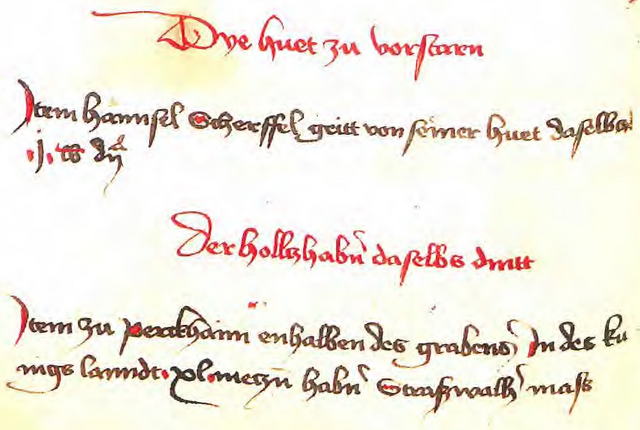 Dye huet zu vorstarn
Item Hannsel Scherffel geitt von seiner huet daselbs
.j. dn
Der holtzhabern daselbs dinst
Item zu perckhaim enhalben des grabens In des ku
nigs lanndt .xl. meczn habern Straszwalher mass